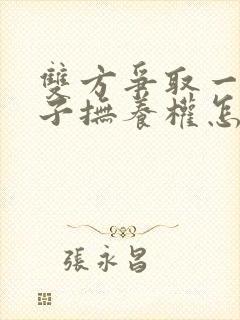 雙方爭取一
子撫養權怎
張永昌